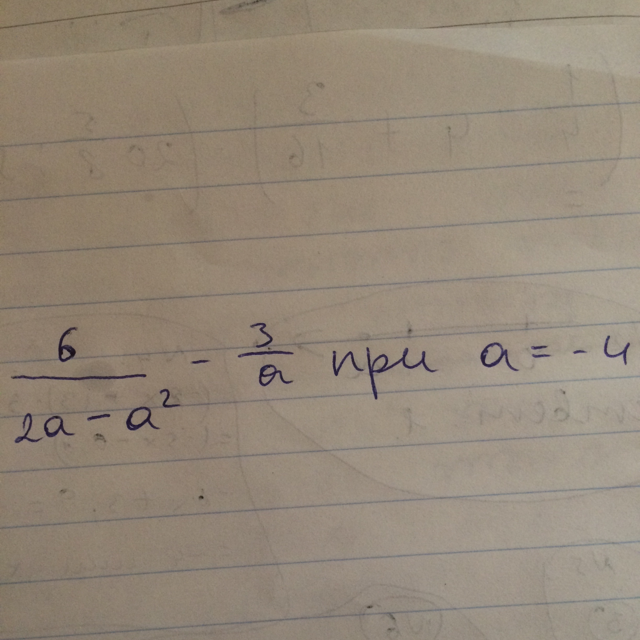 6/(2a - a²) - 3/a при a = -4